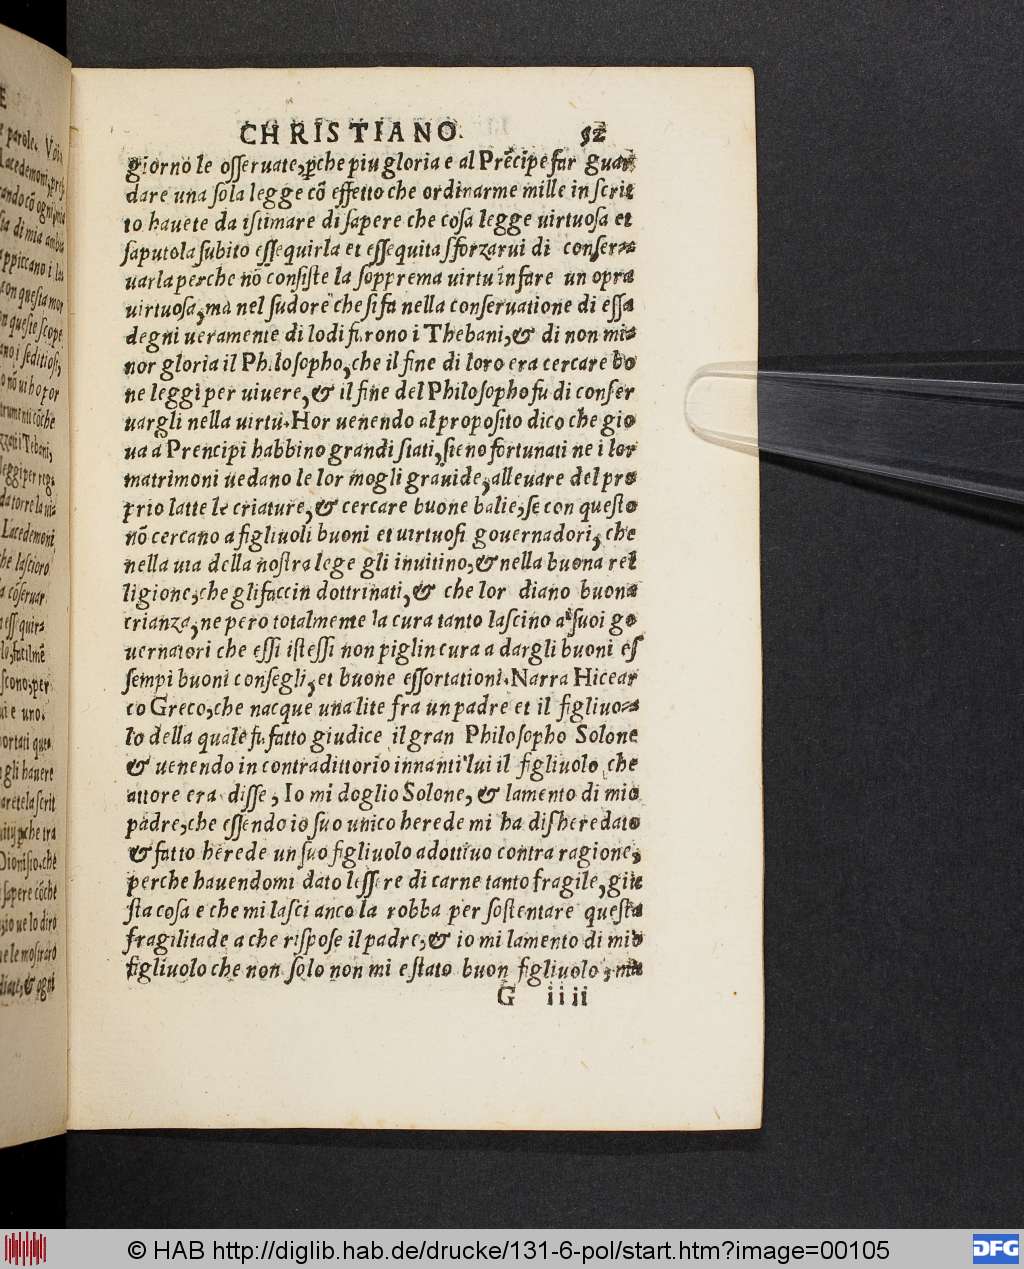 CHRISTIANO. 52
giorno le osseruate, ꝑche piu gloria e al Prēcipe far guar
dare una sola legge cō effetto che ordinarme mille in scrit
to hauete da istimare di sapere che cosa legge uirtuosa et
saputola subito essequirla et essequita sforzarui di conser-
uarla perche nō consiste la sopprema uirtu infare un opra
uirtuosa, ma nel sudore che si fa nella conseruatione di essa
degni ueramente di lodi furono i Thebani, & di non mi-
nor gloria il Philosopho, che il fine di loro era cercare bo
ne leggi per uiuere, & il fine del Philosopho fu di conser
uargli nella uirtu. Hor uenendo al proposito dico che gio
ua a Prencipi habbino grandi stati, sieno fortunati ne i lor
matrimoni uedano le lor mogli grauide, alleuare del pro
prio latte le criature, & cercare buone balie, se con questo
nō cercano a figliuoli buoni et uirtuosi gouernadori, che
nella uia della nostra lege gli inuitino, & nella buona rel
ligione, che gli faccin dottrinati, & che lor diano buona
crianza, ne pero totalmente la cura tanto lascino a suoi go
uernatori che essi istessi non piglin cura a dargli buoni es
sempi buoni consegli, et buone essortationi. Narra Hicear
co Greco, che nacque una lite fra un padre et il figliuo-
lo della quale fu fatto giudice il gran Philosopho Solone
& uenendo in contradittorio innanti lui il figliuolo che
attore era disse, Io mi doglio Solone, & lamento di mio
padre, che essendo io suo unico herede mi ha disheredato
& fatto herede un suo figliuolo adottiuo contra ragione,
perche hauendomi dato lessere di carne tanto fragile, giu
sta cosa e che mi lasci anco la robba per sostentare questa
fragilitade a che rispose il padre, & io mi lamento di mio
figliuolo che non solo non mi e stato buon figliuolo, ma
G iiii
© HAB http://diglib.hab.de/drucke/131-6-pol/start.htm?image=00105
DFG